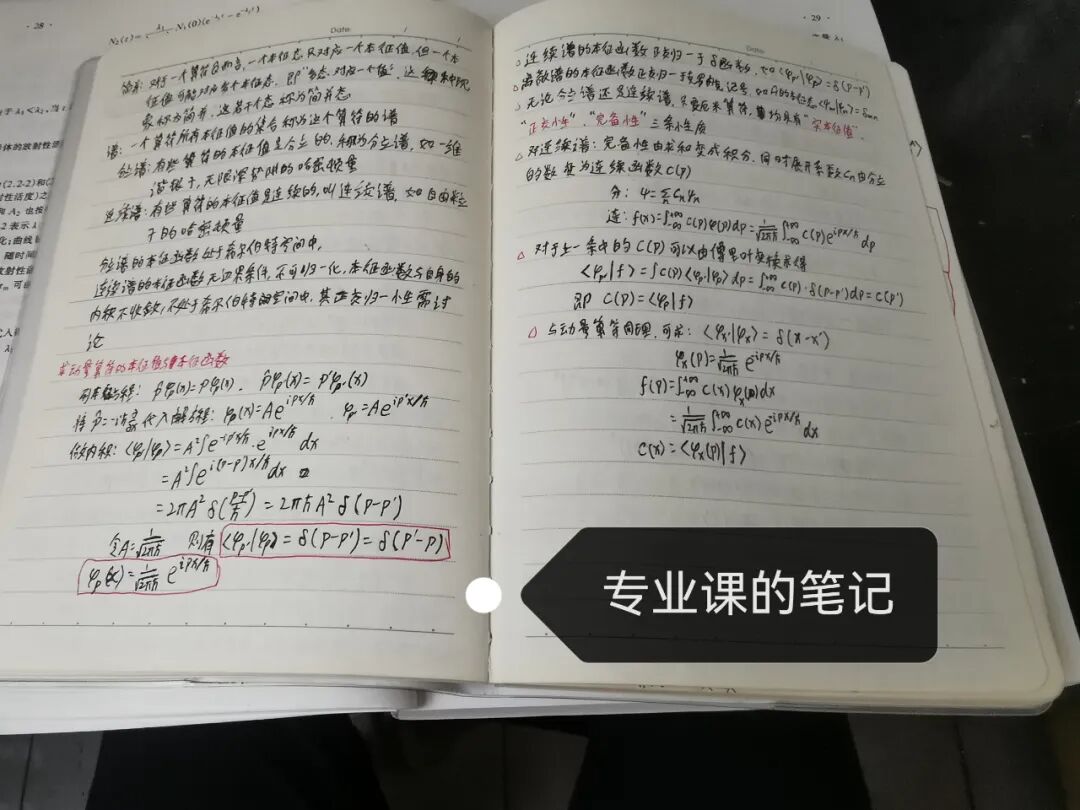 · 28 ·
N₂(t)= N₁(0)(e^{-λ₁t}-e^{-λ₂t})
Date
简并：对于一个算符Q而言，一个本征态只对应一个本征值，但一个本
征值可能对应若干个本征态，即"多态对应一个值"，这种
象称为简并，这若干个态称为简并态
谱：一个算符所有本征值的集合称为这个算符的谱
分立谱：有些算符的本征值是分立的，称为分立谱，如一维
谐振子，无限深势阱的哈密顿量
连续谱：有些算符的本征值是连续的，叫连续谱，如自由粒
子的哈密顿量
分立谱的本征函数处于希尔伯特空间中，
连续谱的本征函数无边界条件，不可归一化，本征函数与自身的
内积不收敛，不处于希尔伯特空间中，其正交归一性需讨
论
求动量算符的本征值与本征函数
列本征方程：p̂φp(x)=pφp(x)，p̂φp'(x)=p'φp'(x)
将p̂=-iħ d/dx 代入解方程：φp(x)=Ae^{ipx/ħ} φp'=Ae^{ip'x/ħ}
做内积：⟨φp'|φp⟩=A²∫e^{-ip'x/ħ}·e^{ipx/ħ}dx
=A²∫e^{i(p-p')x/ħ}dx
=2πA²δ((p-p')/ħ)=2πħA²δ(p-p')
令A=1/√2πħ 则有 ⟨φp'|φp⟩=δ(p-p')=δ(p'-p)
φp(x)=1/√2πħ e^{ipx/ħ}
· 29 ·
Date
△ 连续谱的本征函数正交归一于δ函数，如⟨φp'|φp⟩=δ(p-p')
△ 离散谱的本征函数正交归一于克罗内克记号，如Ĥ的本征态⟨ψm|ψn⟩=δmn
△ 无论分立谱还是连续谱，只要厄米算符，均具有"实本征值"，
"正交性"，"完备性"三条性质
△ 对连续谱：完备性由求和变成积分，同时展开系数Cn由分立
的数变为连续函数C(p)
分：ψ=∑Cnψn
连：f(x)=∫_{-∞}^{+∞}C(p)φ(p)dp=1/√2πħ ∫_{-∞}^{+∞}C(p)e^{ipx/ħ}dp
△ 对于上一条中的C(p)可以由傅里叶变换求得
⟨φp'|f⟩=∫C(p)⟨φp'|φp⟩dp=∫_{-∞}^{+∞}C(p)·δ(p-p')dp=C(p')
即 C(p)=⟨φp|f⟩
△ 与动量算符同理，可求：⟨φx'|φx⟩=δ(x-x')
φx(p)=1/√2πħ e^{-ipx/ħ}
f(p)=∫_{-∞}^{+∞}C(x)φx(p)dx
=1/√2πħ ∫_{-∞}^{+∞}C(x)e^{-ipx/ħ}dx
C(x)=⟨φx(p)|f⟩
专业课的笔记